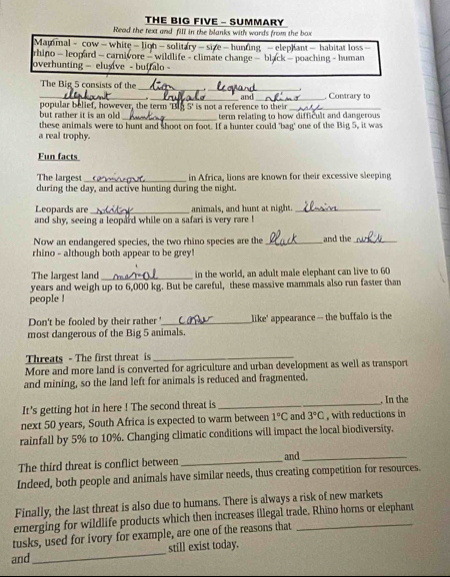 THE BIG FIVE – SUMMARY
Read the text and fill in the blanks with words from the box
Mammal - cow – white – lion – solitary – size – hunting – elephant – habitat loss –
rhino – leopard – carnivore – wildlife - climate change – black – poaching - human
overhunting – elusive - buffalo -
The Big 5 consists of the lion, leopard,
elephant, buffalo and rhino. Contrary to
popular belief, however, the term 'Big 5' is not a reference to their size
but rather it is an old hunting term relating to how difficult and dangerous
these animals were to hunt and shoot on foot. If a hunter could 'bag' one of the Big 5, it was
a real trophy.
Fun facts
The largest in Africa, lions are known for their excessive sleeping
during the day, and active hunting during the night.
Leopards are animals, and hunt at night.
and shy, seeing a leopard while on a safari is very rare !
Now an endangered species, the two rhino species are the black and the white
rhino - although both appear to be grey!
The largest land in the world, an adult male elephant can live to 60
years and weigh up to 6,000 kg. But be careful, these massive mammals also run faster than
people !
Don't be fooled by their rather ' like' appearance – the buffalo is the
most dangerous of the Big 5 animals.
Threats - The first threat is
More and more land is converted for agriculture and urban development as well as transport
and mining, so the land left for animals is reduced and fragmented.
It's getting hot in here ! The second threat is . In the
next 50 years, South Africa is expected to warm between 1°C and 3°C , with reductions in
rainfall by 5% to 10%. Changing climatic conditions will impact the local biodiversity.
The third threat is conflict between and
Indeed, both people and animals have similar needs, thus creating competition for resources.
Finally, the last threat is also due to humans. There is always a risk of new markets
emerging for wildlife products which then increases illegal trade. Rhino horns or elephant
tusks, used for ivory for example, are one of the reasons that
and still exist today.